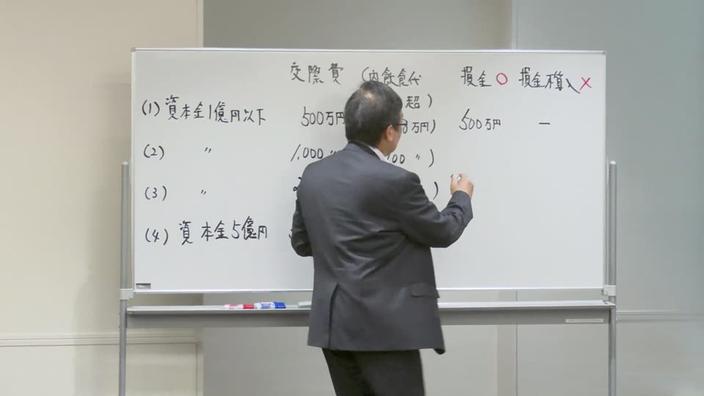 交際費 (内飲食代 損金 ○ 損金不算入 ×
超)
(1) 資本金1億円以下 500万円 3万円) 500万円 ー
(2) 〃 1,000 〃 00 〃)
(3) 〃 )
(4) 資本金5億円